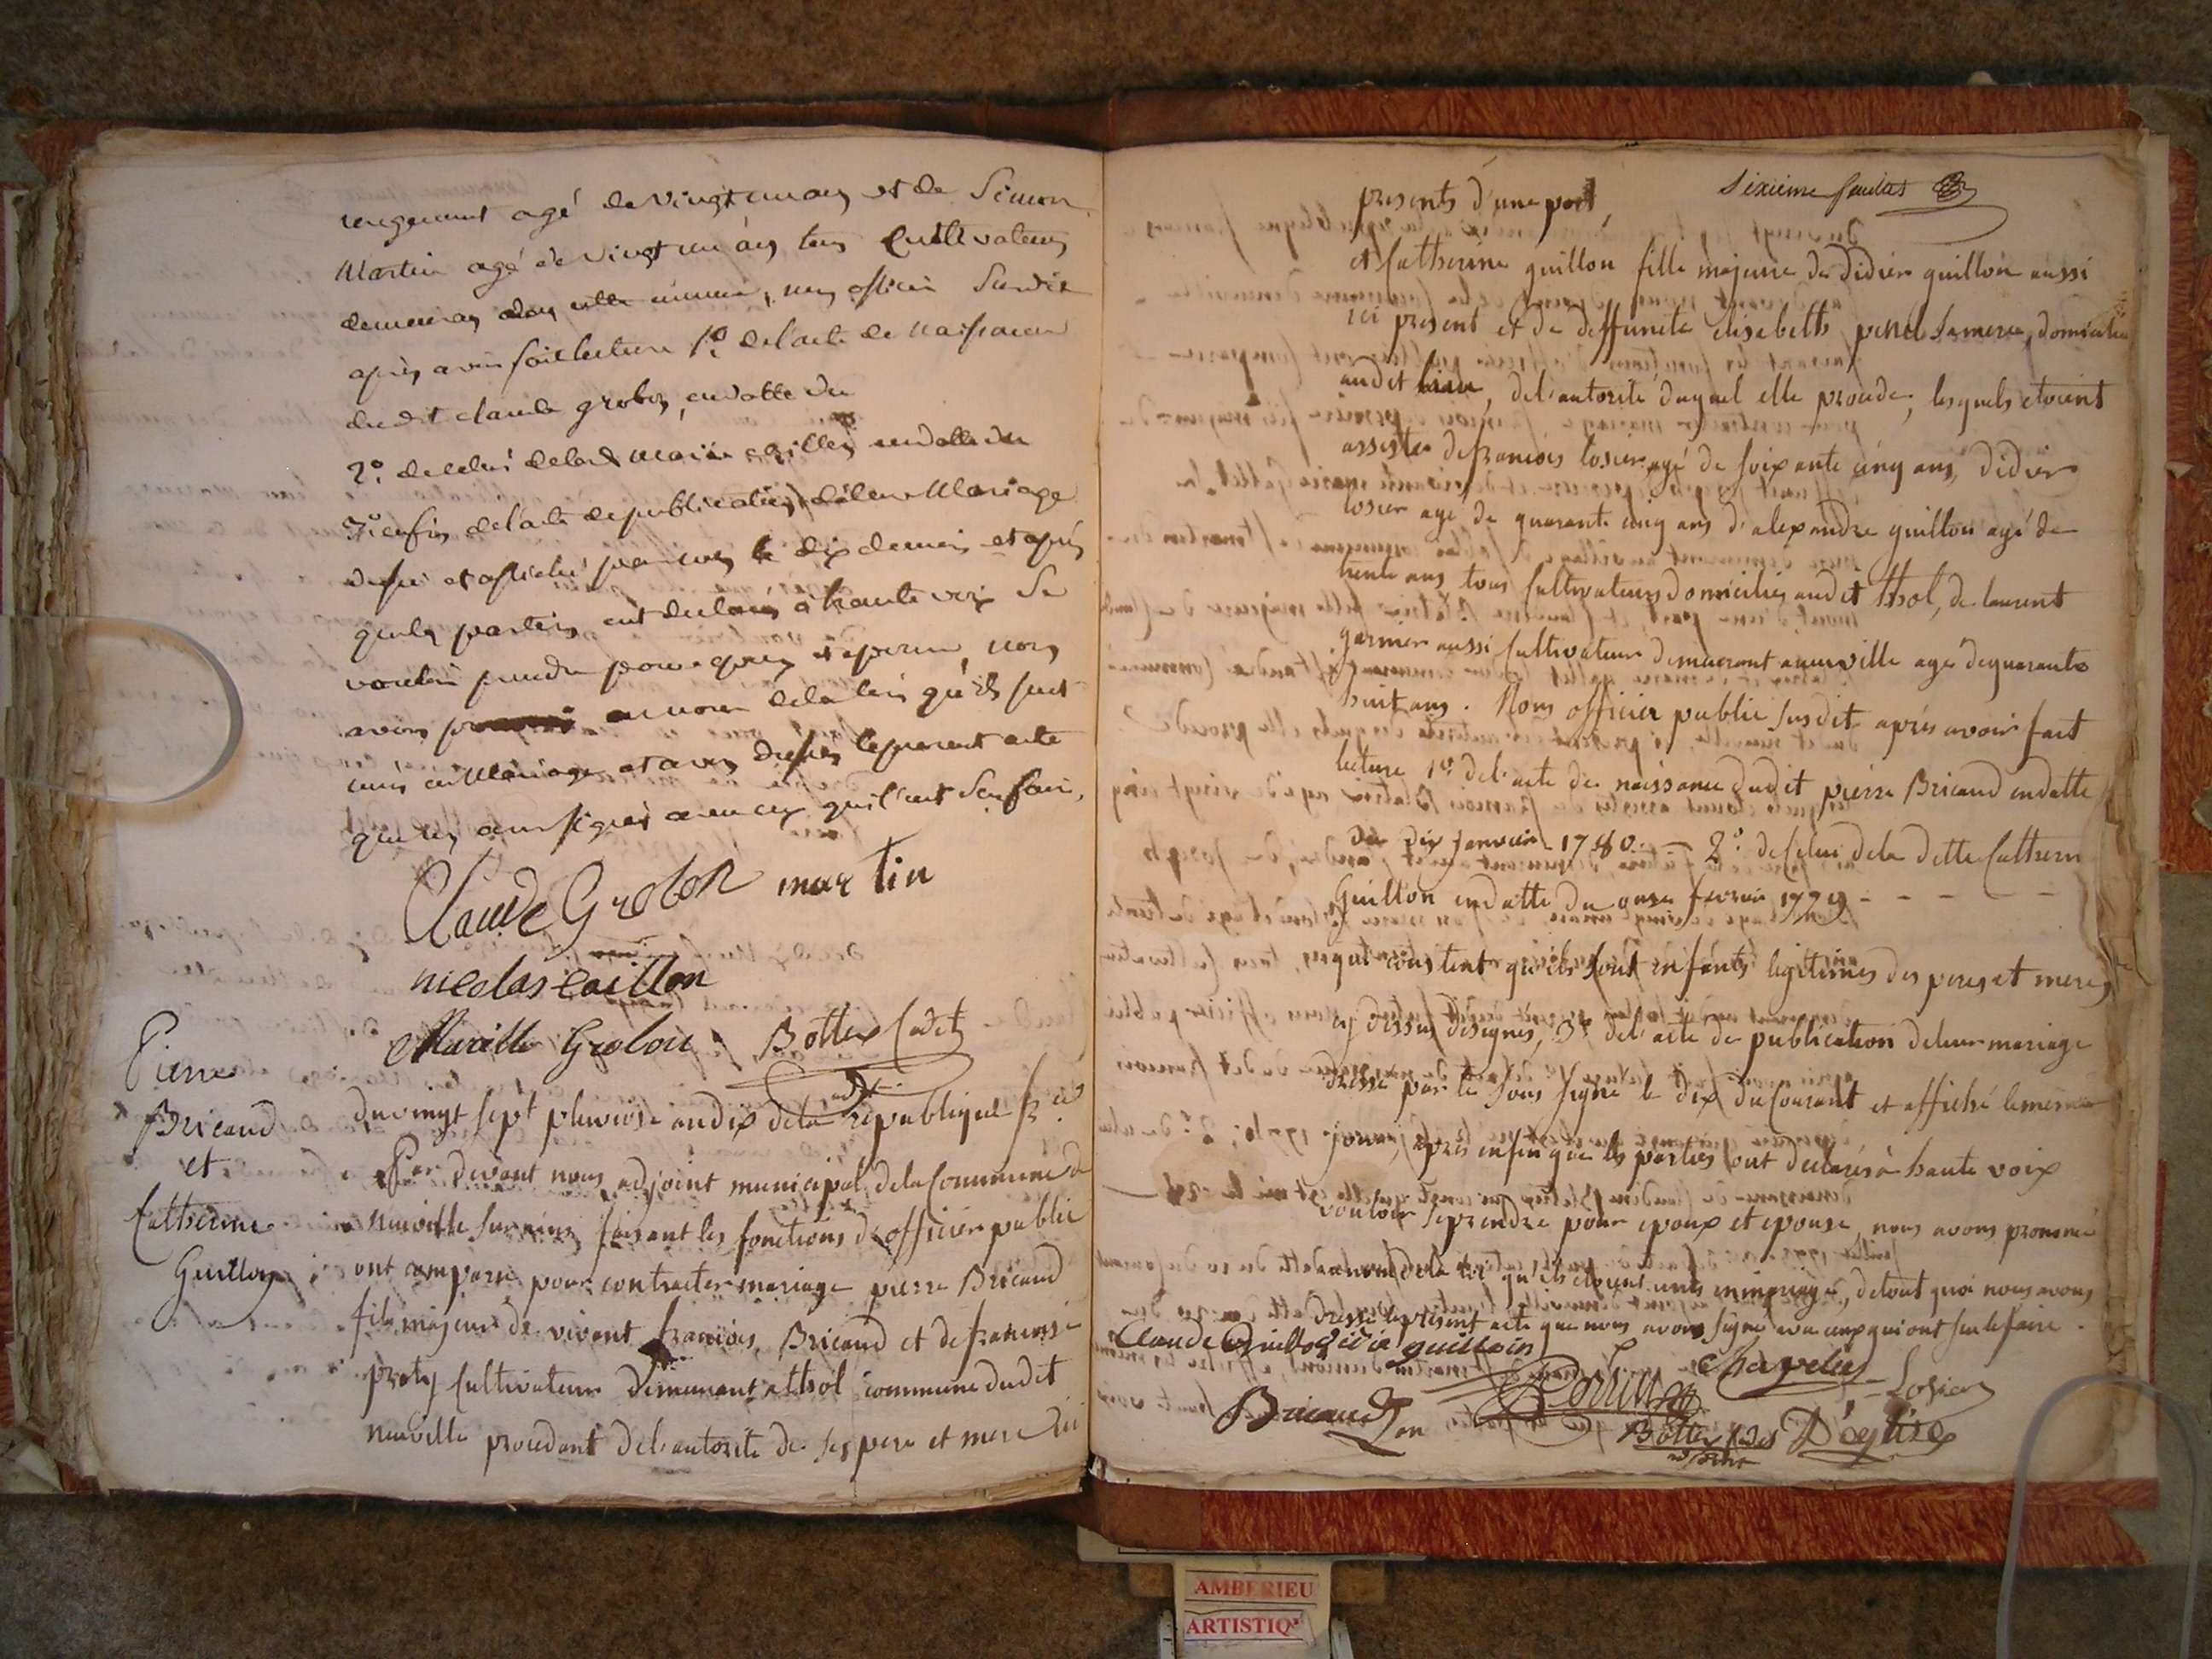 agé de vingt un ans et de Simon
Martin agé de vingt un ans tous Cultivateurs
après avoir fait lecture 1º de l'acte de naissance
dudit claude grobon, en datte du
2º de celui de lad. marie en datte du
3º enfin de l'acte de publication de leur Mariage
et affiché par nous le dix et après
que les parties ont declaré à haute voix se
vouloir prendre pour époux et épouse, nous
avons au nom de la loi qu'ils sont
unis en Mariage et avons dressé le present acte
que nous avons signé avec ceux qui l'ont sçu faire,
Claude Grobon martin
nicolas caillon
Mariette Grobon Bottex Cadet
adjt
Pierre
Bricaud
et
Catherine
Guillon
du vingt sept pluviose an dix de la republique fr.
Par devant nous adjoint municipal de la Commune de
neuville sur ains faisant les fonctions d'officier public
ont comparu pour contracter mariage pierre Bricaud
fils majeur de vivant francois Bricaud et de francoise
Cultivateur demeurant a thol commune dudit
neuville procedant de l'autorité de ses pere et mere ici
Sixieme feuillet
presents d'une part,
et Catherine guillon fille majeure de Didier guillon aussi
ici present et de deffuncte elisabeth sa mere, domiciliée
audit lieu, de l'autorité duquel elle procede, lesquels etoient
assistés de francois losier agé de soixante cinq ans, didier
losier agé de quarante cinq ans d'alexandre guillon agé de
trente ans tous Cultivateurs domiciliés audit thol, de laurent
garnier aussi Cultivateur demeurant a neuville agé de quarante
huit ans. Nous officier public susdit après avoir fait
lecture 1º de l'acte de naissance dudit pierre Bricaud en datte
du dix janvier 1780. — 2º de celui de la dette Catherine
Guillon en datte du onze fevrier 1779 - - - -
qui constent qu'ils sont enfants legitimes des peres et meres
cy dessus designés, 3º de l'acte de publication de leur mariage
dressé par le sous signé le dix du Courant et affiché le meme
jour, après enfin que les parties ont declarés à haute voix
vouloir se prendre pour epoux et epouse, nous avons prononcé
au nom de la loi qu'ils etoient unis en mariage, de tout quoi nous avons
dressé le present acte que nous avons signé avec ceux qui ont sçu le faire.
Claude Guillon didier guillon
Chapelu
Losier
Bricaud
Bottex Cadet
adjoint
D'eglise
AMBERIEU
ARTISTIQ